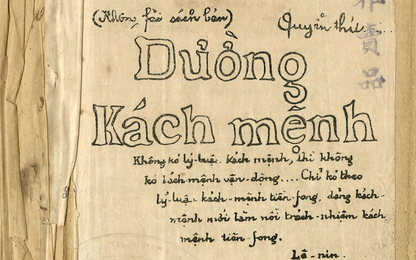 (Không fải sách bán) Quyển thứ
賣品
Đường
Kách mệnh
Không kó lý-luận kách mệnh, thì không
kó kách mệnh vận-động.... Chỉ kó theo
lý-luận kách-mệnh tiền-fong, đảng kách-
mệnh mới làm nổi trách-nhiệm kách
mệnh tiền-fong.
Lê-nin.